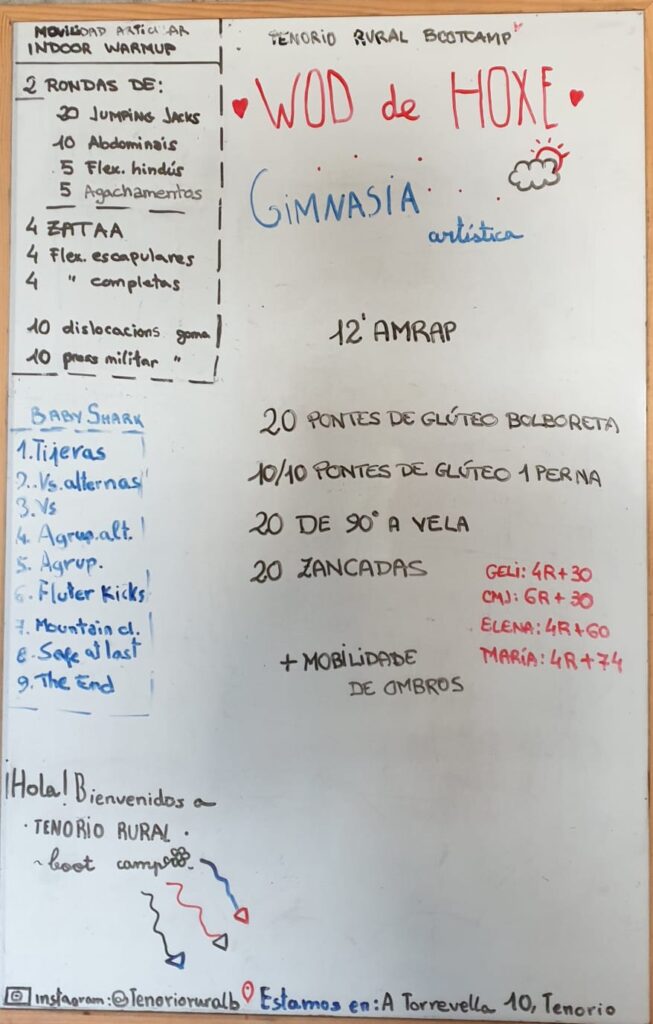 MOVILIDAD ARTICULAR
INDOOR WARMUP
2 RONDAS DE:
20 JUMPING JACKS
10 Abdominais
5 Flex. hindús
5 Agachamentos
4 ZATAA
4 Flex. escapulares
4 " completas
10 dislocacions goma
10 press militar "
BABY SHARK
1. Tijeras
2. Vs. alternas
3. Vs
4. Agrup. alt.
5. Agrup.
6. Fluter Kicks
7. Mountain cl.
8. Safe at last
9. The End
¡Hola! Bienvenidos a
· TENORIO RURAL ·
~ boot camp
TENORIO RURAL BOOTCAMP
WOD de HOXE
GIMNASIA
artística
12' AMRAP
20 PONTES DE GLÚTEO BOLBORETA
10/10 PONTES DE GLÚTEO 1 PERNA
20 DE 90° A VELA
20 ZANCADAS
GELI: 4R+30
CMJ: 6R+30
ELENA: 4R+60
MARÍA: 4R+74
+ MOBILIDADE
DE OMBROS
instagram: @Tenorioruralb Estamos en: A Torrevella 10, Tenorio